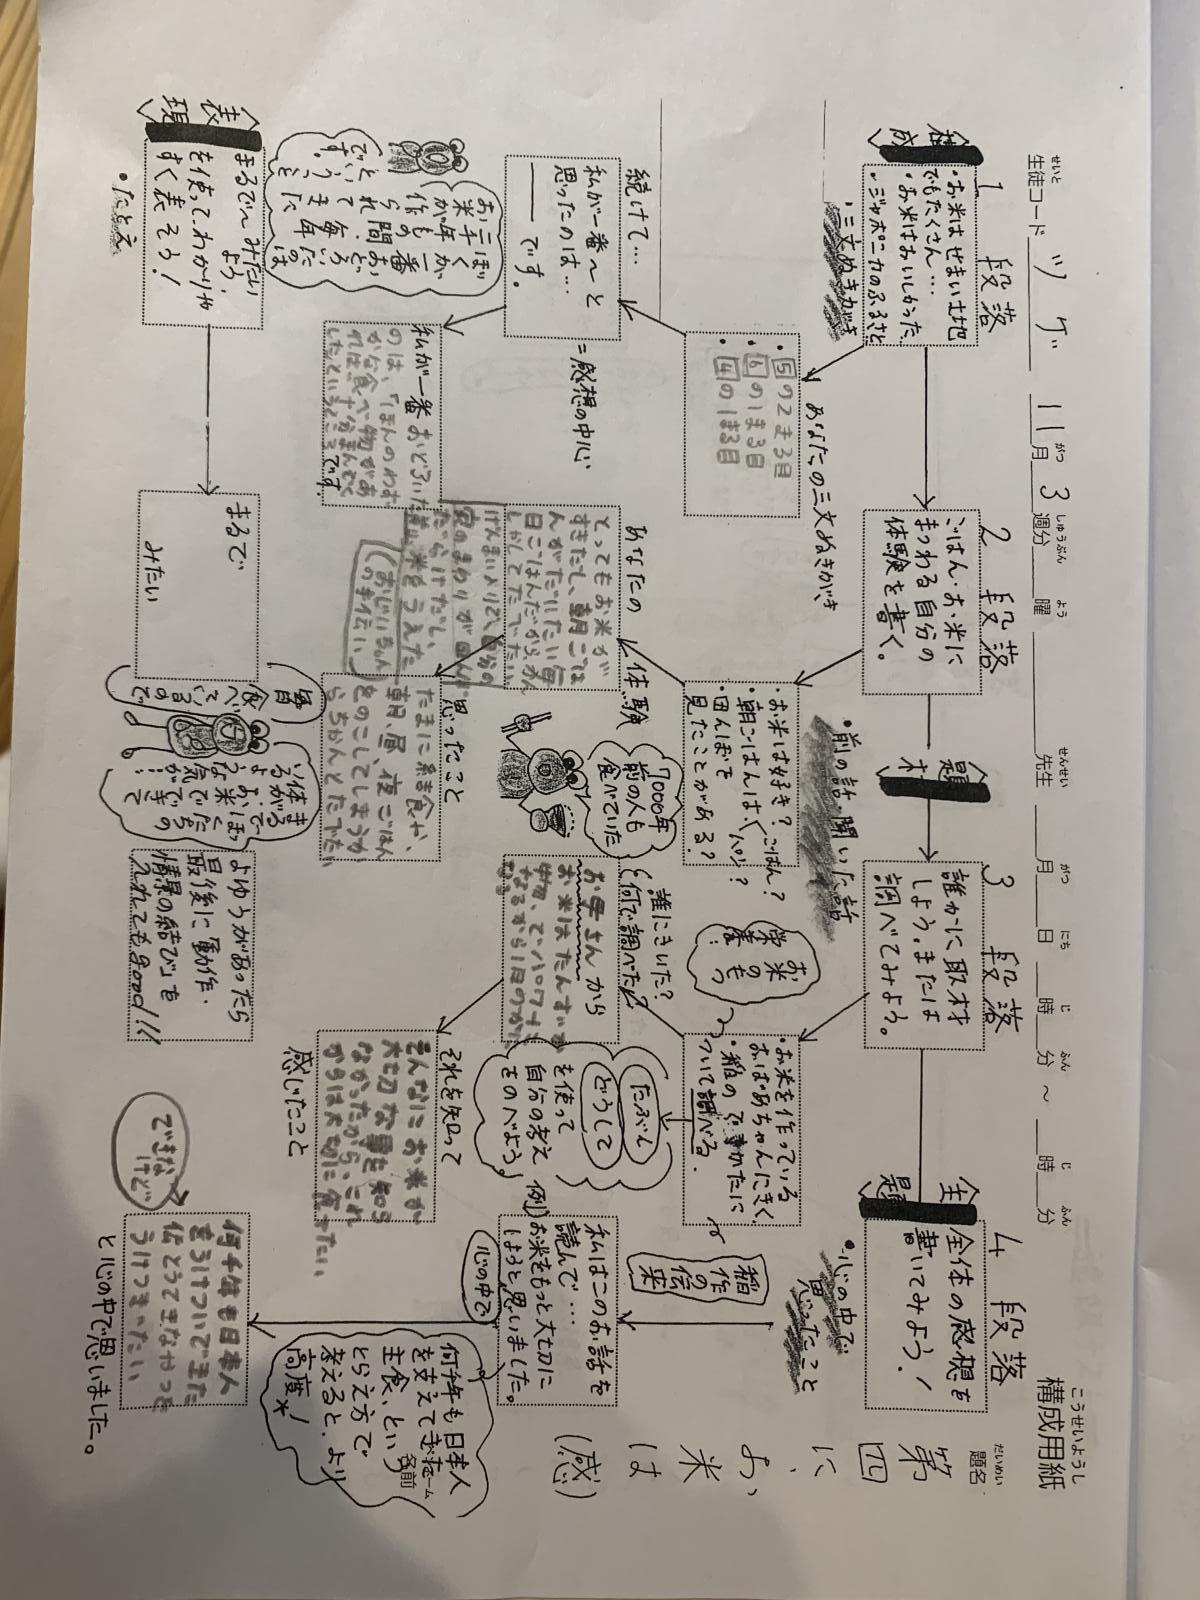 構成用紙
こうせいようし
題名
だいめい
第四に、お米は(感)
名前
ネーム
生徒コード ツゲ 11月3週分 曜 先生 月 日 時 分 ～ 時 分
せいと がつ しゅうぶん よう せんせい がつ にち じ ふん じ ふん
構成
題材
主題
表現
1段落
・お米はせまい土地
でもたくさん…
・お米はおいしかった
・ジャポニカのふるさと
・三文ぬきがき
あなたの三文ぬきがき
・5の2まる目
・6の1まる目
・4の1まる目
続けて…
私が一番～と
思ったのは…
――です。
=感想の中心
私が一番おどろいた
のは、「ほんのわず
かな食べ物があ
れば
したということです。
ぼくが一番おどろいたのは
お米が
二千年もの間、
作られて
でということです。
2段落
ごはん・お米に
まつわる自分の
体験を書く。
・前の話・聞いた話
・お米は好き?
・朝ごはんは、ごはん?パン?
・田んぼを
見たことがある?
7000年
前の人も
食べていた
あなたの体験
とってもお米が
すきだし、朝ごは
んがだいたい毎
日ごはんだから、かん
しゃしてたべたい
げんまいよりで、自分の
家のまわりが田んぼ
だらけだし、
お米をうえた
(おじいちゃん
のお手伝い)
思ったこと
たまに給食や、
朝、昼、夜ごはん
をのこしてしまうか
らちゃんとたべたい
3段落
誰かに取材
しよう。または
調べてみよう。
・お米を作っている
おばあちゃんにきく。
・稲のできかたに
ついて調べる。
お米の
栄養
誰にきいた?
(何で調べた?)
お母さんから
お米はたんすいか
物、でパワーに
なるから1日のかて
たぶん
どうして
を使って
自分の考え
をのべよう
それを知って
感じたこと
そんなにお米が
大切な事を知ら
なかったから、これ
からは大切に食べたい
4段落
全体の感想を
書いてみよう!
・心の中で
思ったこと
稲作の伝来
例)
私はこのお話を
読んで…
お米をもっと大切に
しようと思いました。
心の中で
何千年も日本人
を支えてきた
主食、という
とらえ方で
考えると、より
高度*!
何千年も日本人
をうけついできた
伝とうてきなやつを
うけつぎたい
と心の中で思いました。
できな
けど
まるで～みたい
を使ってわかりや
すく表そう!
・たとえ
まるで
みたい
毎日
食べているので
まるで
お米
体ができて
いるような気が…
よゆうがあったら
最後に動作・
情景の結びを
入れてもgood!!!